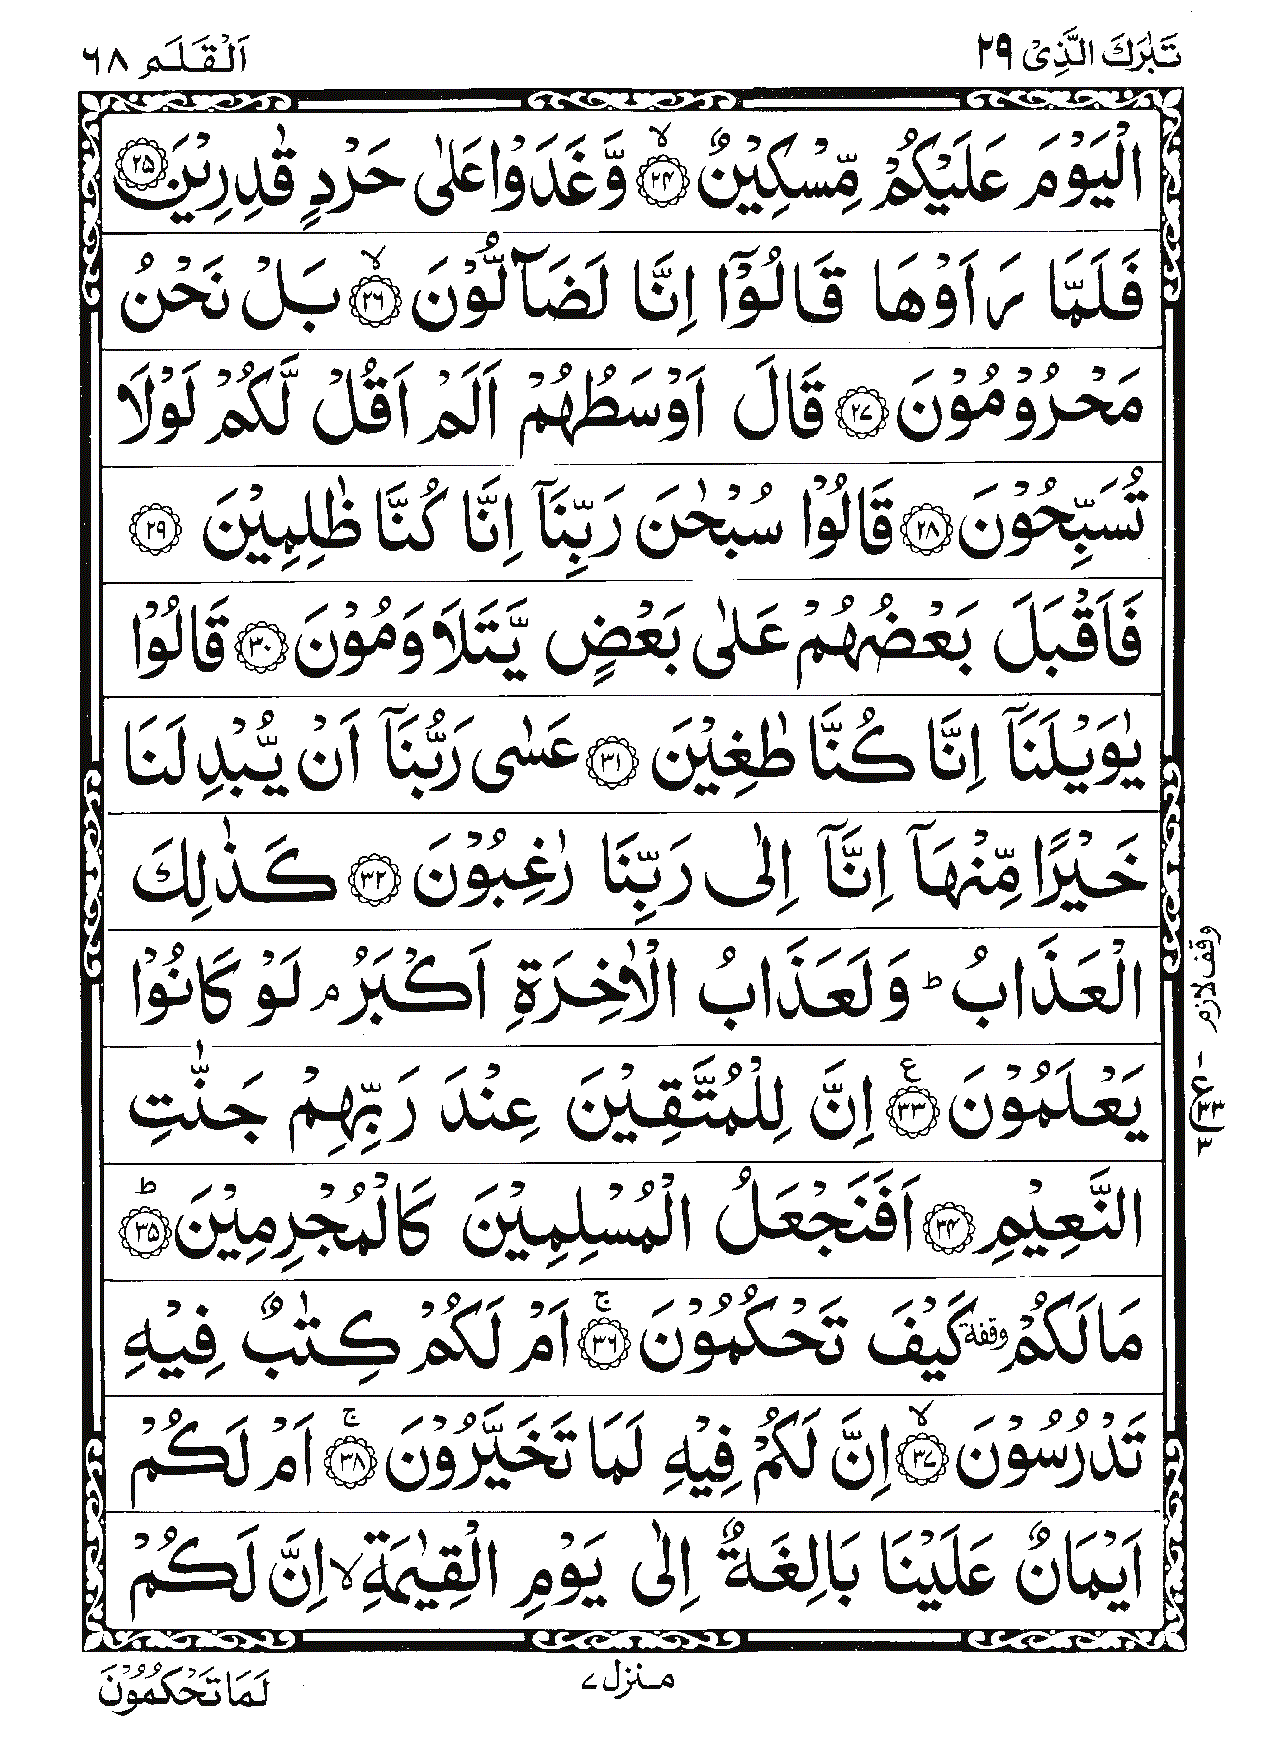 تَبٰرَكَ الَّذِیْ ٢٩
اَلْقَلَم ٦٨
الْیَوْمَ عَلَیْكُمْ مِّسْكِیْنٌ ﴿٢٤﴾ۙ وَّغَدَوْا عَلٰی حَرْدٍ قٰدِرِیْنَ ﴿٢٥﴾
فَلَمَّا رَاَوْهَا قَالُوْۤا اِنَّا لَضَآلُّوْنَ ﴿٢٦﴾ۙ بَلْ نَحْنُ
مَحْرُوْمُوْنَ ﴿٢٧﴾ قَالَ اَوْسَطُهُمْ اَلَمْ اَقُلْ لَّكُمْ لَوْلَا
تُسَبِّحُوْنَ ﴿٢٨﴾ قَالُوْا سُبْحٰنَ رَبِّنَاۤ اِنَّا كُنَّا ظٰلِمِیْنَ ﴿٢٩﴾
فَاَقْبَلَ بَعْضُهُمْ عَلٰی بَعْضٍ یَّتَلَاوَمُوْنَ ﴿٣٠﴾ قَالُوْا
یٰوَیْلَنَاۤ اِنَّا كُنَّا طٰغِیْنَ ﴿٣١﴾ عَسٰی رَبُّنَاۤ اَنْ یُّبْدِلَنَا
خَیْرًا مِّنْهَاۤ اِنَّاۤ اِلٰی رَبِّنَا رٰغِبُوْنَ ﴿٣٢﴾ كَذٰلِكَ
الْعَذَابُ ؕ وَلَعَذَابُ الْاٰخِرَةِ اَكْبَرُ ۘ لَوْ كَانُوْا
یَعْلَمُوْنَ ﴿٣٣﴾ۧ اِنَّ لِلْمُتَّقِیْنَ عِنْدَ رَبِّهِمْ جَنّٰتِ
النَّعِیْمِ ﴿٣٤﴾ اَفَنَجْعَلُ الْمُسْلِمِیْنَ كَالْمُجْرِمِیْنَ ﴿٣٥﴾ؕ
مَا لَكُمْ وقفة كَیْفَ تَحْكُمُوْنَ ﴿٣٦﴾ۚ اَمْ لَكُمْ كِتٰبٌ فِیْهِ
تَدْرُسُوْنَ ﴿٣٧﴾ۙ اِنَّ لَكُمْ فِیْهِ لَمَا تَخَیَّرُوْنَ ﴿٣٨﴾ۚ اَمْ لَكُمْ
اَیْمَانٌ عَلَیْنَا بَالِغَةٌ اِلٰی یَوْمِ الْقِیٰمَةِ ۙ اِنَّ لَكُمْ
وقف لازم
١
ع
٣٣
٣
منزل ٧
لَمَا تَحْكُمُوْنَ